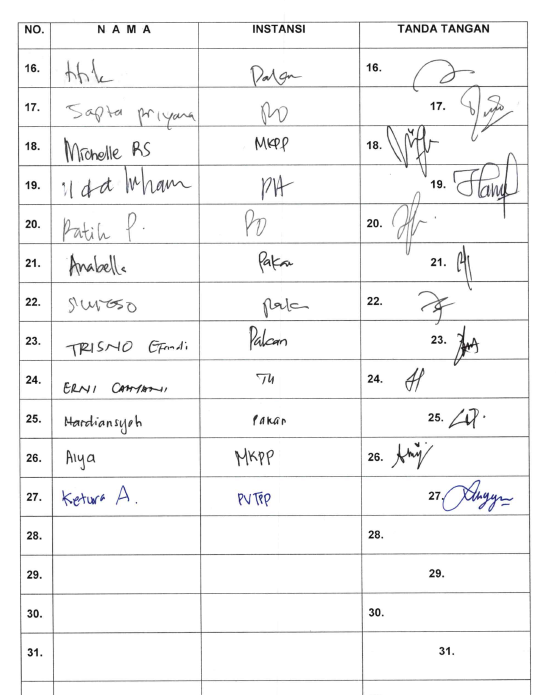 NO. N A M A INSTANSI TANDA TANGAN
16. 16.
17. Sapta priyana PO 17.
18. Michelle RS MKPP 18.
19. 19.
20. Ratih P. PO 20.
21. Anabella Pakan 21.
22. 22.
23. TRISNO Efendi Pakan 23.
24. ERNI CAHYANI TU 24.
25. Hardiansyah Pakan 25.
26. Alya MKPP 26.
27. Ketura A. PVTPP 27.
28. 28.
29. 29.
30. 30.
31. 31.